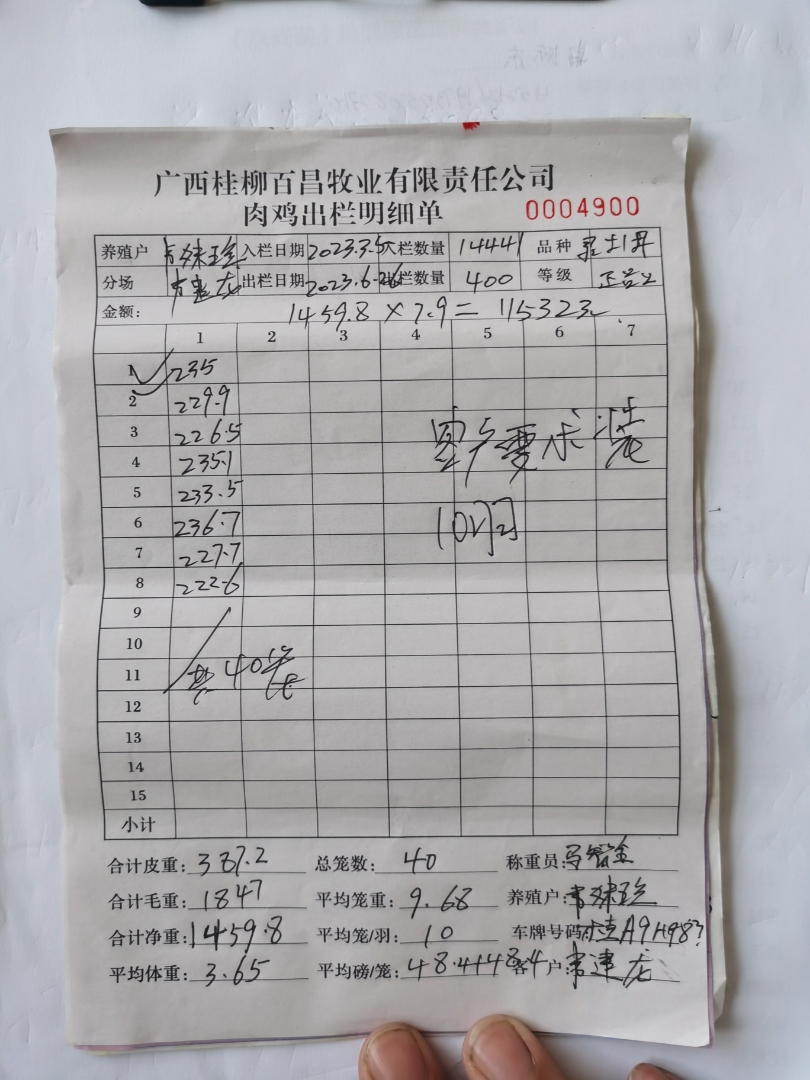 广西桂柳百昌牧业有限责任公司
肉鸡出栏明细单 0004900
养殖户 入栏日期 2023.3.5 入栏数量 14441 品种
分场 出栏日期 2023.6.26 出栏数量 400 等级
金额: 1459.8 × 7.9 = 11532元
1 2 3 4 5 6 7
1 235
2 229.9
3 226.5
4 235.1
5 233.5
6 236.7
7 227.7
8 222.6
9
10
11 共40笼
12
13
14
15
小计
客户要求装
10只
合计皮重: 387.2 总笼数: 40 称重员:
合计毛重: 1847 平均笼重: 9.68 养殖户:
合计净重: 1459.8 平均笼/羽: 10 车牌号码
平均体重: 3.65 平均磅/笼: 48.4+48.4 客户: